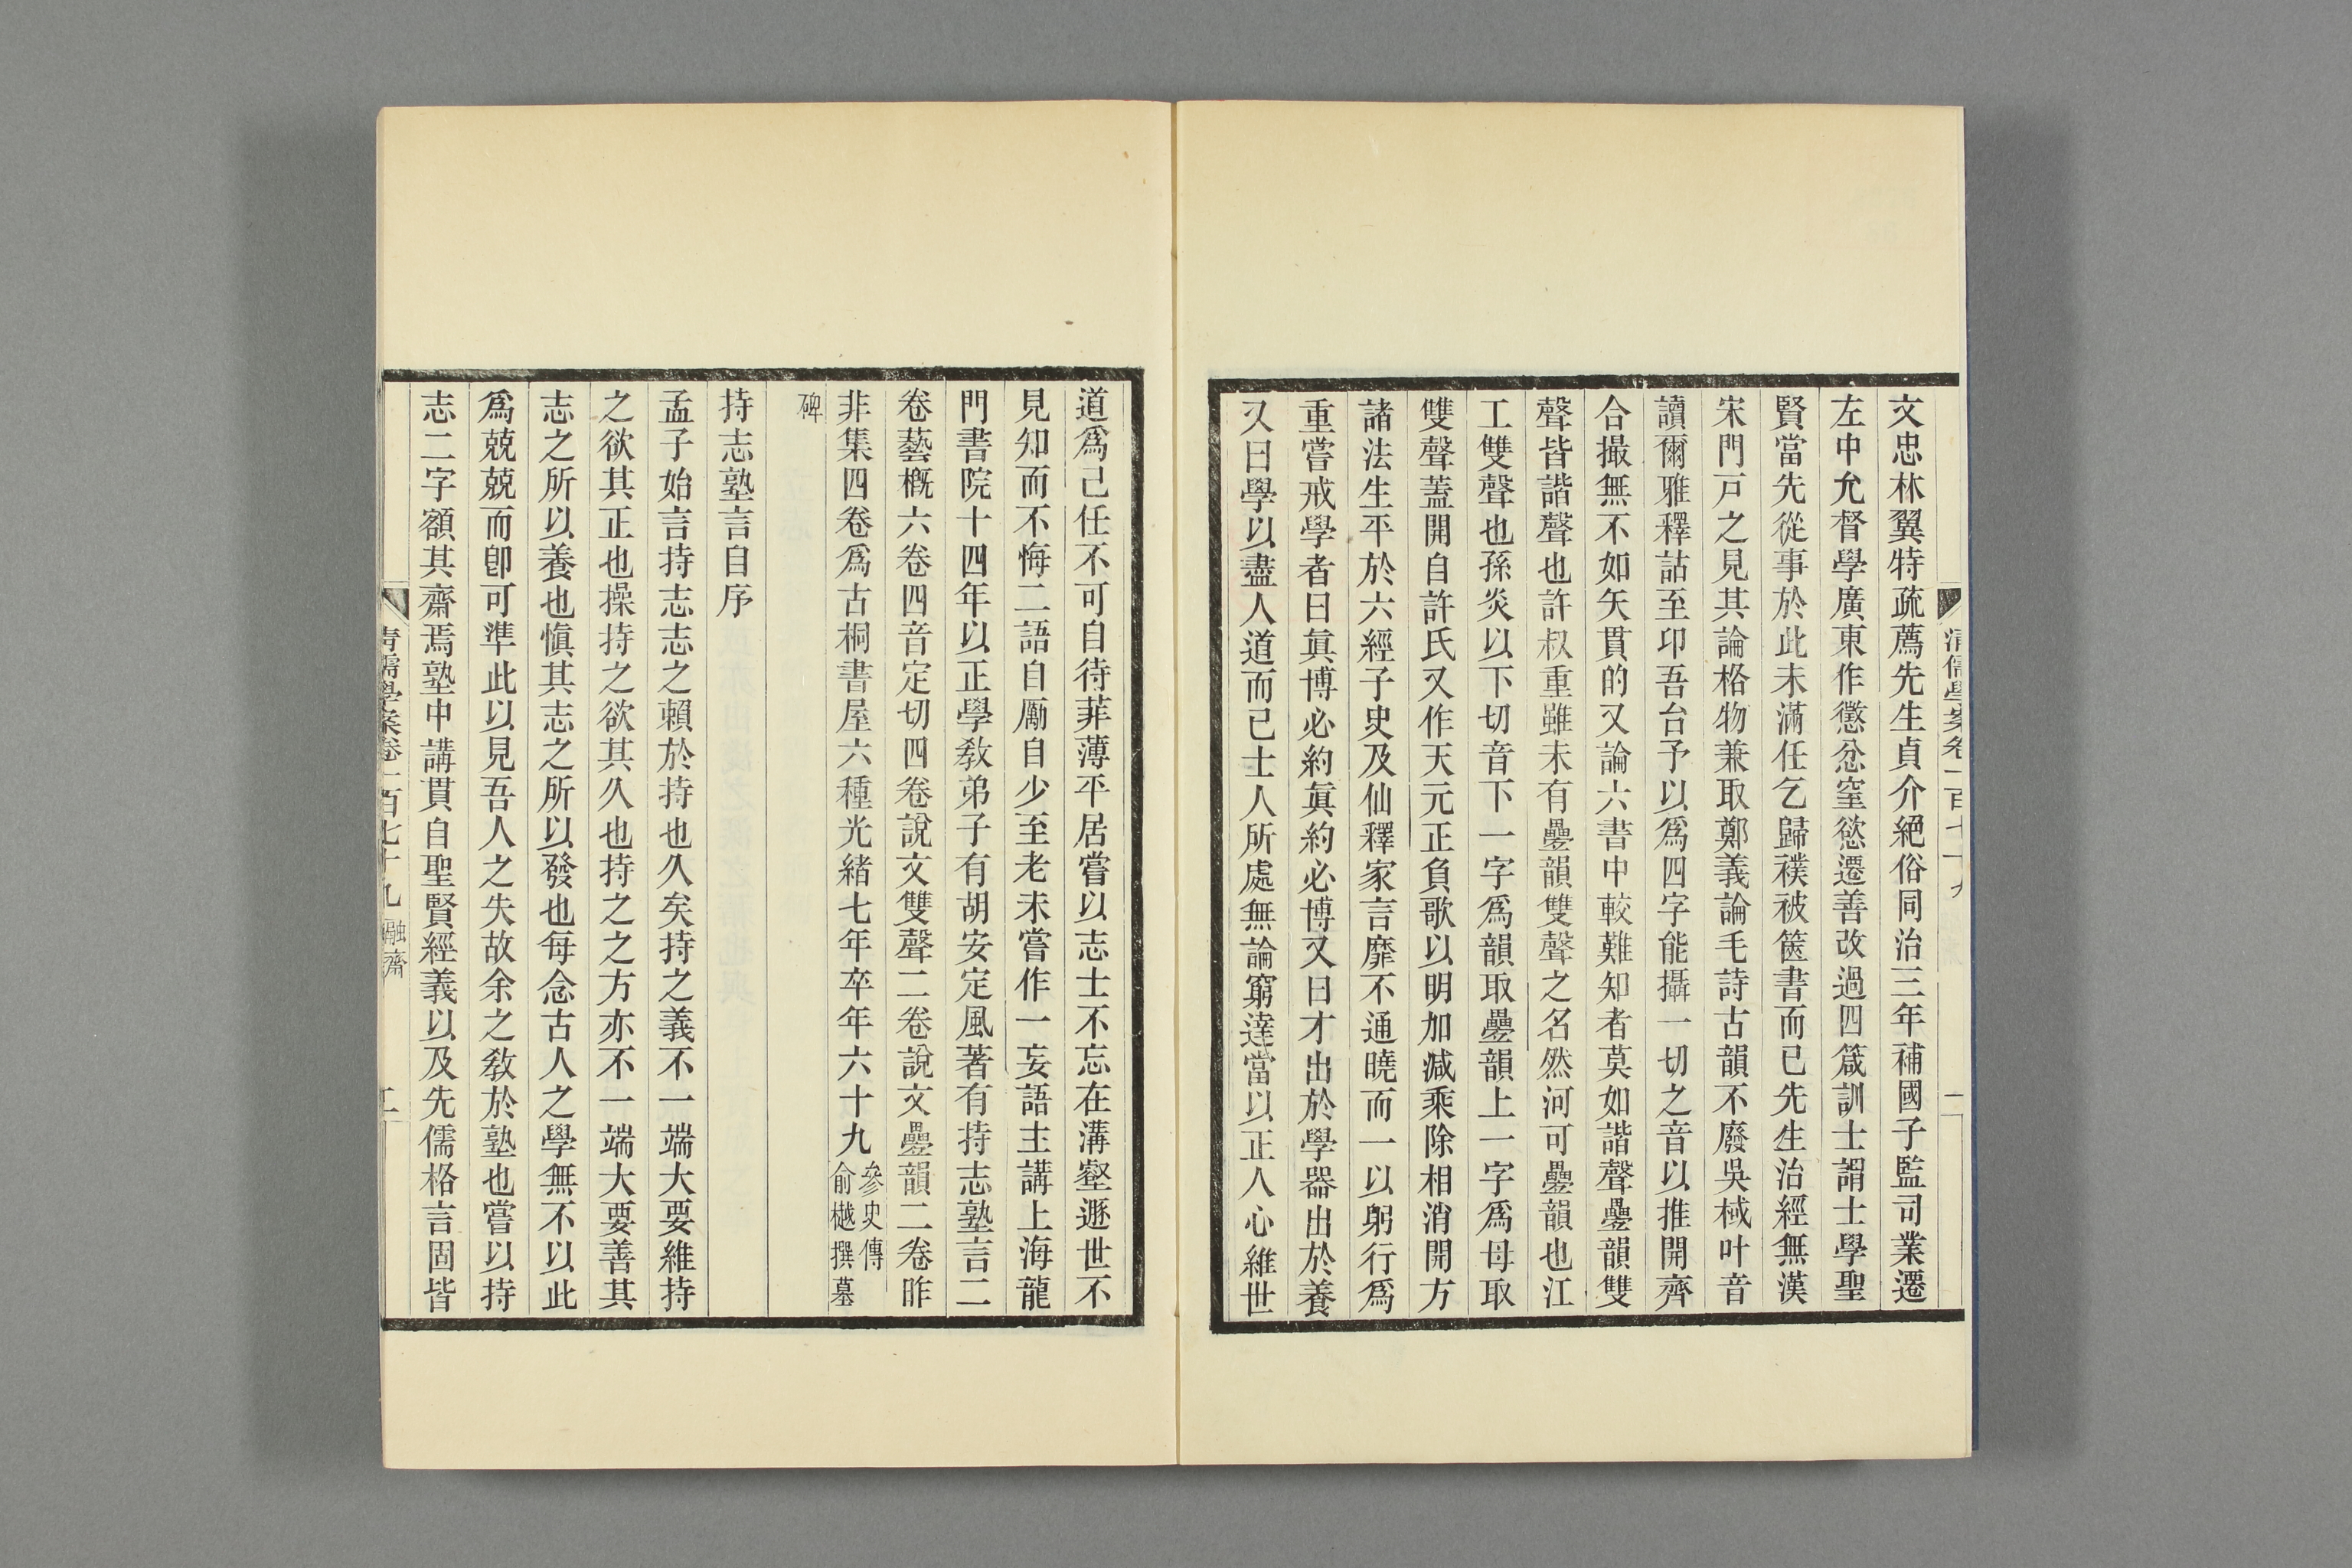 文忠林翼特疏薦先生貞介絕俗同治三年補國子監司業遷
左中允督學廣東作懲忿窒慾遷善改過四箴訓士謂士學聖
賢當先從事於此未滿任乞歸襆被篋書而已先生治經無漢
宋門戸之見其論格物兼取鄭義論毛詩古韻不廢吳棫叶音
讀爾雅釋詁至卬吾台予以爲四字能攝一切之音以推開齊
合撮無不如矢貫的又論六書中較難知者莫如諧聲疊韻雙
聲皆諧聲也許叔重雖未有疊韻雙聲之名然河可疊韻也江
工雙聲也孫炎以下切音下一字爲韻取疊韻上一字爲母取
雙聲蓋開自許氏又作天元正負歌以明加減乘除相消開方
諸法生平於六經子史及仙釋家言靡不通曉而一以躬行爲
重嘗戒學者曰眞博必約眞約必博又曰才出於學器出於養
又曰學以盡人道而已士人所處無論窮達當以正人心維世
道爲己任不可自待菲薄平居嘗以志士不忘在溝壑遯世不
見知而不悔二語自勵自少至老未嘗作一妄語主講上海龍
門書院十四年以正學敎弟子有胡安定風著有持志塾言二
卷藝概六卷四音定切四卷說文雙聲二卷說文疊韻二卷昨
非集四卷爲古桐書屋六種光緒七年卒年六十九參史傳
俞樾撰墓
碑
持志塾言自序
孟子始言持志志之賴於持也久矣持之義不一端大要維持
之欲其正也操持之欲其久也持之之方亦不一端大要善其
志之所以養也愼其志之所以發也每念古人之學無不以此
爲兢兢而卽可準此以見吾人之失故余之敎於塾也嘗以持
志二字額其齋焉塾中講貫自聖賢經義以及先儒格言固皆
清儒學案卷一百七十九 融齋 二